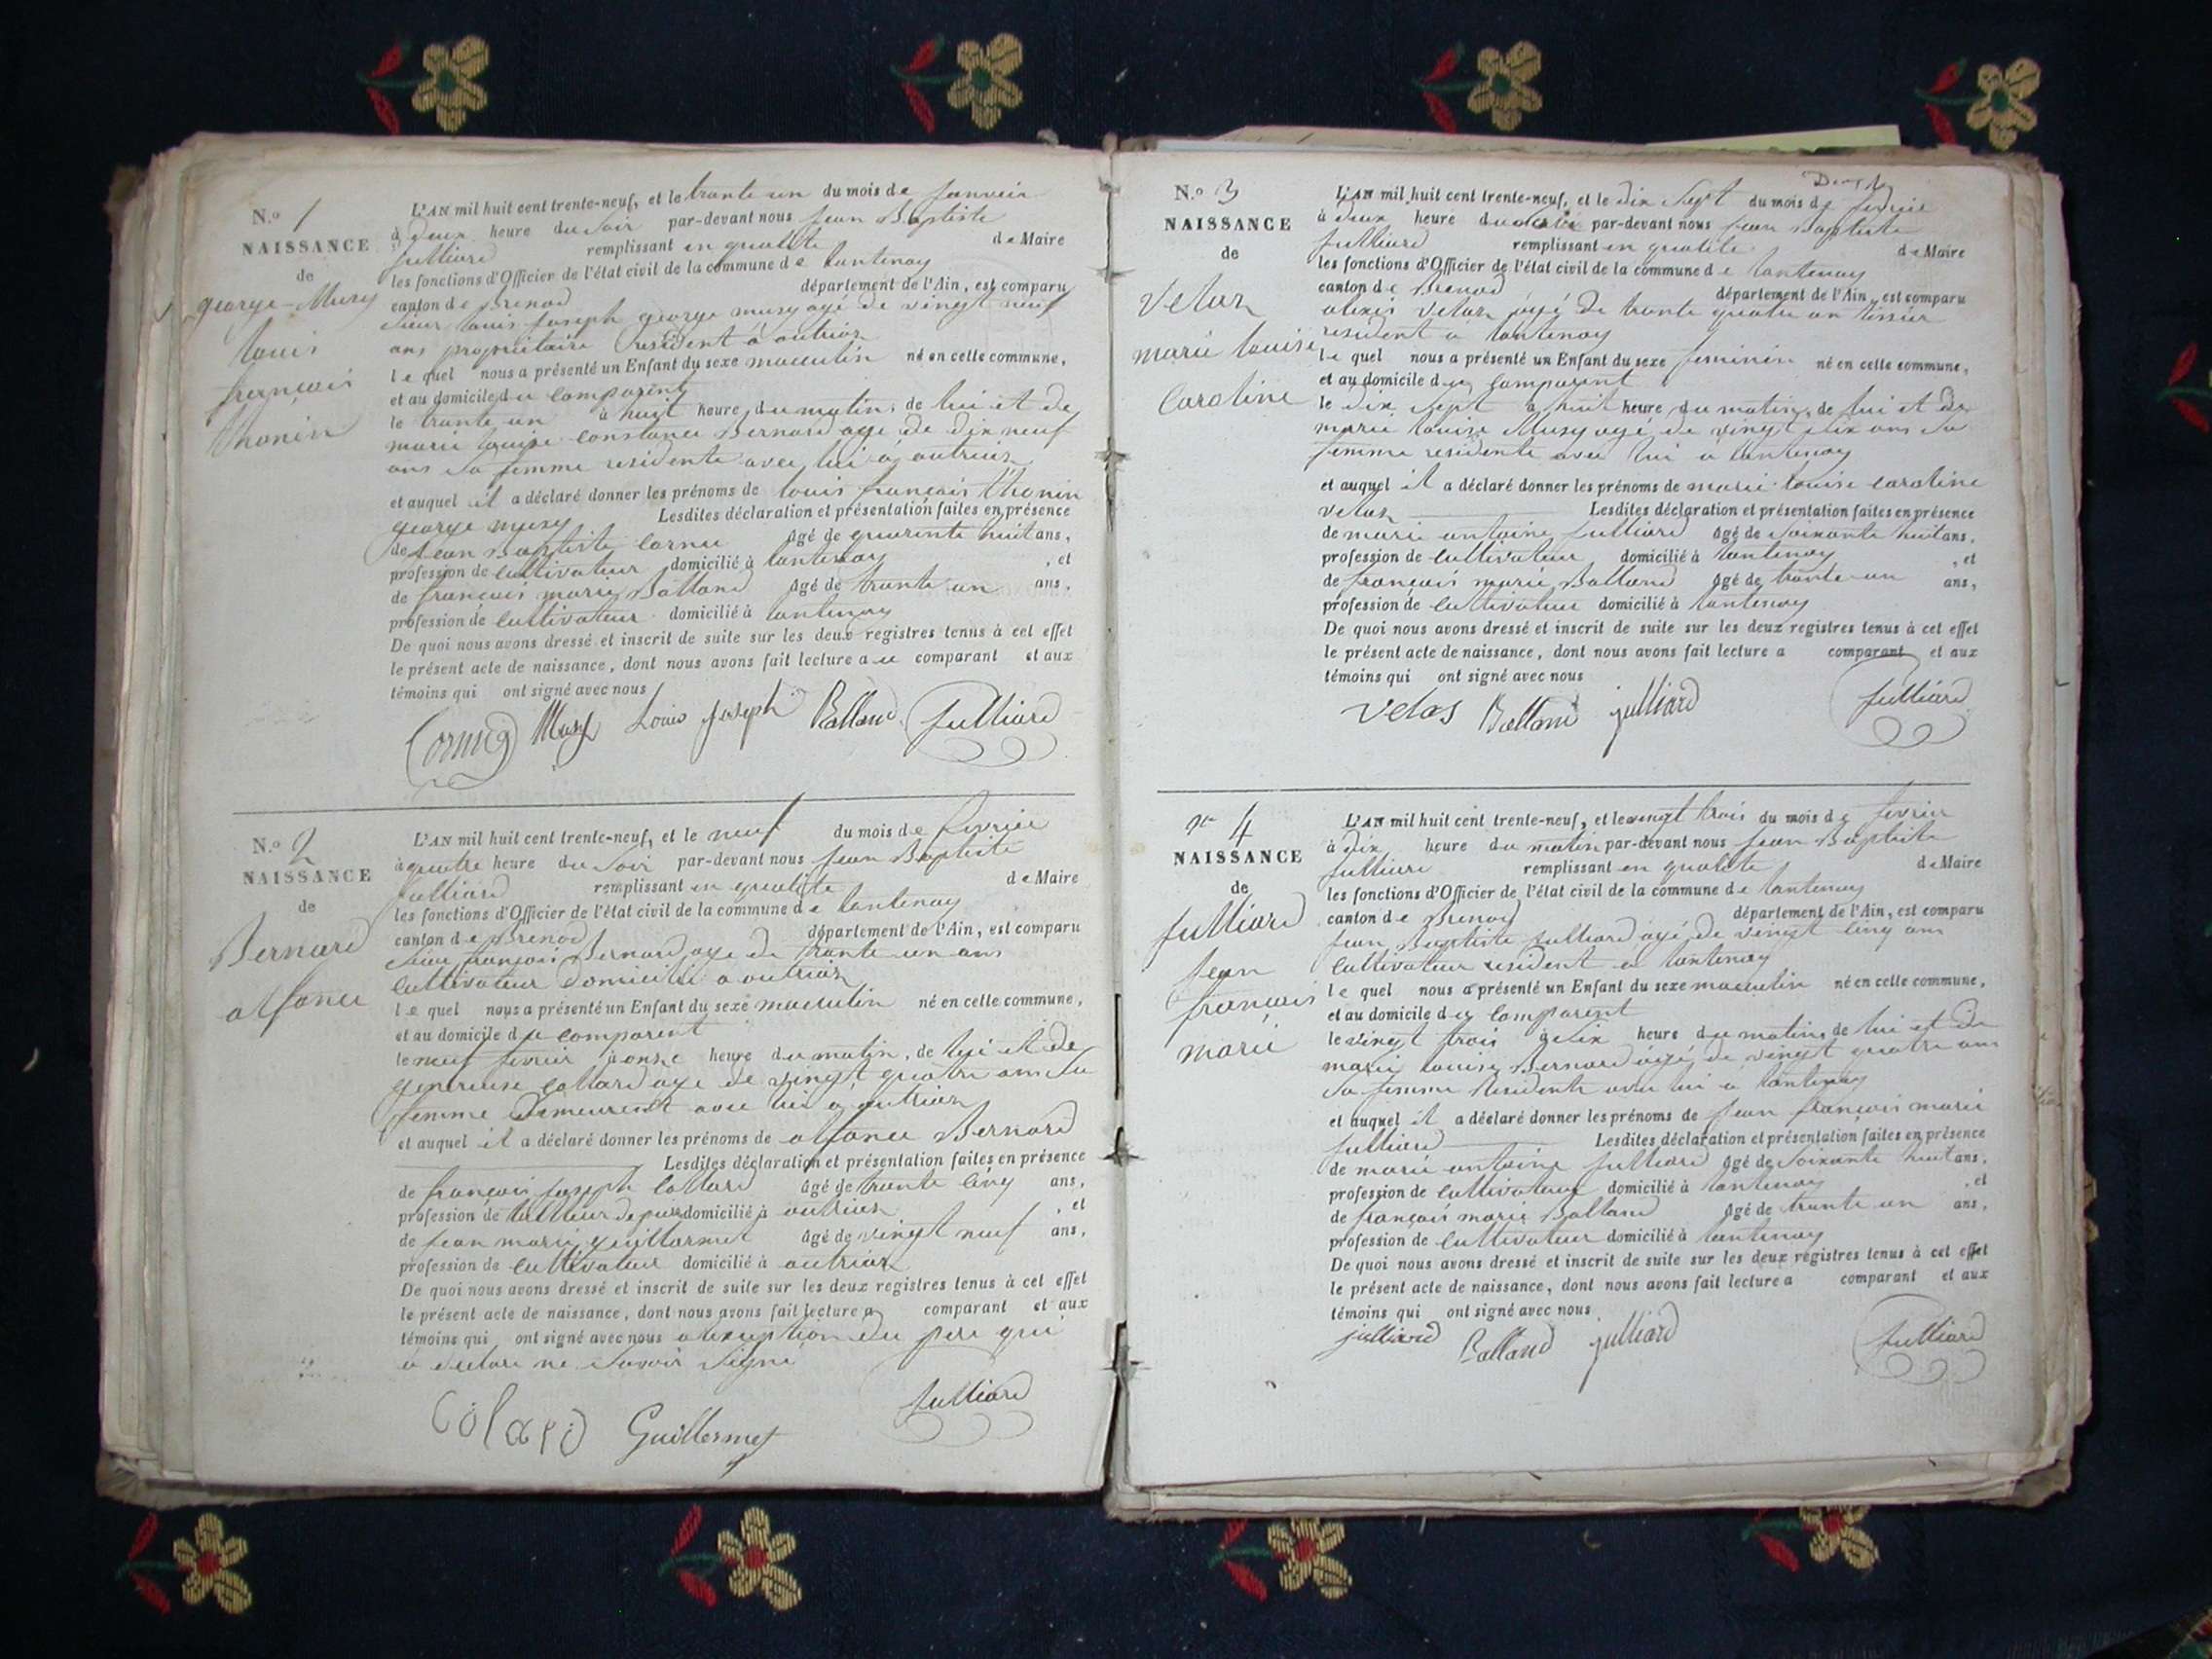 N.o 1
NAISSANCE
de
george-Musy
louis
françois
thonin
L'AN mil huit cent trente-neuf, et le trante un du mois de Janvier
à deux heure du Soir par-devant nous Jean Baptiste
Julliard remplissant en qualite de Maire
les fonctions d'Officier de l'état civil de la commune de lantenay
canton de Brenod département de l'Ain, est comparu
Sieur louis Joseph george musy agé de vingt neuf
ans propriétaire résident à outriaz
le quel nous a présenté un Enfant du sexe masculin né en cette commune,
et au domicile du comparent
le trante un à huit heure du matin, de lui et de
marie louise constance Bernard agé de dix neuf
ans Sa femme residente avec lui a outriaz
et auquel il a déclaré donner les prénoms de louis françois thonin
george musy Lesdites déclaration et présentation faites en présence
de Jean Baptiste Cornu âgé de quarente huit ans,
profession de Cultivateur domicilié à lantenay, et
de françois marie Balland âgé de trante un ans,
profession de Cultivateur domicilié à lantenay
De quoi nous avons dressé et inscrit de suite sur les deux registres tenus à cet effet
le présent acte de naissance, dont nous avons fait lecture au comparant et aux
témoins qui ont signé avec nous
Musy Louis Joseph Balland Julliard
N.o 2
NAISSANCE
de
Bernard
alfonce
L'AN mil huit cent trente-neuf, et le neuf du mois de fevrier
à quatre heure du Soir par-devant nous Jean Baptiste
Julliard remplissant en qualite de Maire
les fonctions d'Officier de l'état civil de la commune de lantenay
canton de Brenod département de l'Ain, est comparu
Sieur françois Bernard age de trante un ans
Cultivateur Domicilié a outriaz
le quel nous a présenté un Enfant du sexe masculin né en cette commune,
et au domicile du comparent
le neuf fevrier à onze heure du matin, de lui et de
genereuse collard age de vingt quatre ans Sa
femme Demeurent avec lui a outriaz
et auquel il a déclaré donner les prénoms de alfonce Bernard
Lesdites déclaration et présentation faites en présence
de françois Joseph Collard âgé de trante cinq ans,
profession de domicilié à outriaz, et
de Jean marie guillermet âgé de vingt neuf ans,
profession de Cultivateur domicilié à outriaz
De quoi nous avons dressé et inscrit de suite sur les deux registres tenus à cet effet
le présent acte de naissance, dont nous avons fait lecture au comparant et aux
témoins qui ont signé avec nous a lexception du pere qui
a declare ne Savoir Signe
Colard Guillermet Julliard
N.o 3
NAISSANCE
de
Velas
marie louise
Caroline
L'AN mil huit cent trente-neuf, et le dix Sept du mois de fevrier
à deux heure du par-devant nous Jean Baptiste
Julliard remplissant en qualite de Maire
les fonctions d'Officier de l'état civil de la commune de lantenay
canton de Brenod département de l'Ain, est comparu
alexis Velas agé de trante quatre an tissier
resident a lantenay
le quel nous a présenté un Enfant du sexe feminin né en cette commune,
et au domicile du comparent
le dix Sept a huit heure du matin, de lui et de
marie louise Musy agé de vingt Six ans Sa
femme residente avec lui a lantenay
et auquel il a déclaré donner les prénoms de marie louise caroline
velas Lesdites déclaration et présentation faites en présence
de marie antoine Julliard âgé de Soixante huit ans,
profession de Cultivateur domicilié à lantenay, et
de françois marie Balland âgé de trante un ans,
profession de Cultivateur domicilié à lantenay
De quoi nous avons dressé et inscrit de suite sur les deux registres tenus à cet effet
le présent acte de naissance, dont nous avons fait lecture a comparant et aux
témoins qui ont signé avec nous
Velas Balland julliard Julliard
n° 4
NAISSANCE
de
Julliard
Jean
françois
marie
L'AN mil huit cent trente-neuf, et le vingt trois du mois de fevrier
à dix heure du matin par-devant nous Jean Baptiste
Julliard remplissant en qualite de Maire
les fonctions d'Officier de l'état civil de la commune de lantenay
canton de Brenod département de l'Ain, est comparu
Jean Baptiste Julliard agé de vingt cinq ans
Cultivateur resident a lantenay
le quel nous a présenté un Enfant du sexe masculin né en cette commune,
et au domicile du comparent
le vingt trois à Six heure du matin, de lui et de
marie louise Bernard agé de vingt quatre ans
Sa femme Residente avec lui a lantenay
et auquel il a déclaré donner les prénoms de Jean françois marie
Julliard Lesdites déclaration et présentation faites en présence
de marie antoine Julliard âgé de Soixante huit ans,
profession de Cultivateur domicilié à lantenay, et
de françois marie Balland âgé de trante un ans,
profession de Cultivateur domicilié à lantenay
De quoi nous avons dressé et inscrit de suite sur les deux registres tenus à cet effet
le présent acte de naissance, dont nous avons fait lecture a comparant et aux
témoins qui ont signé avec nous
julliard Balland julliard Julliard